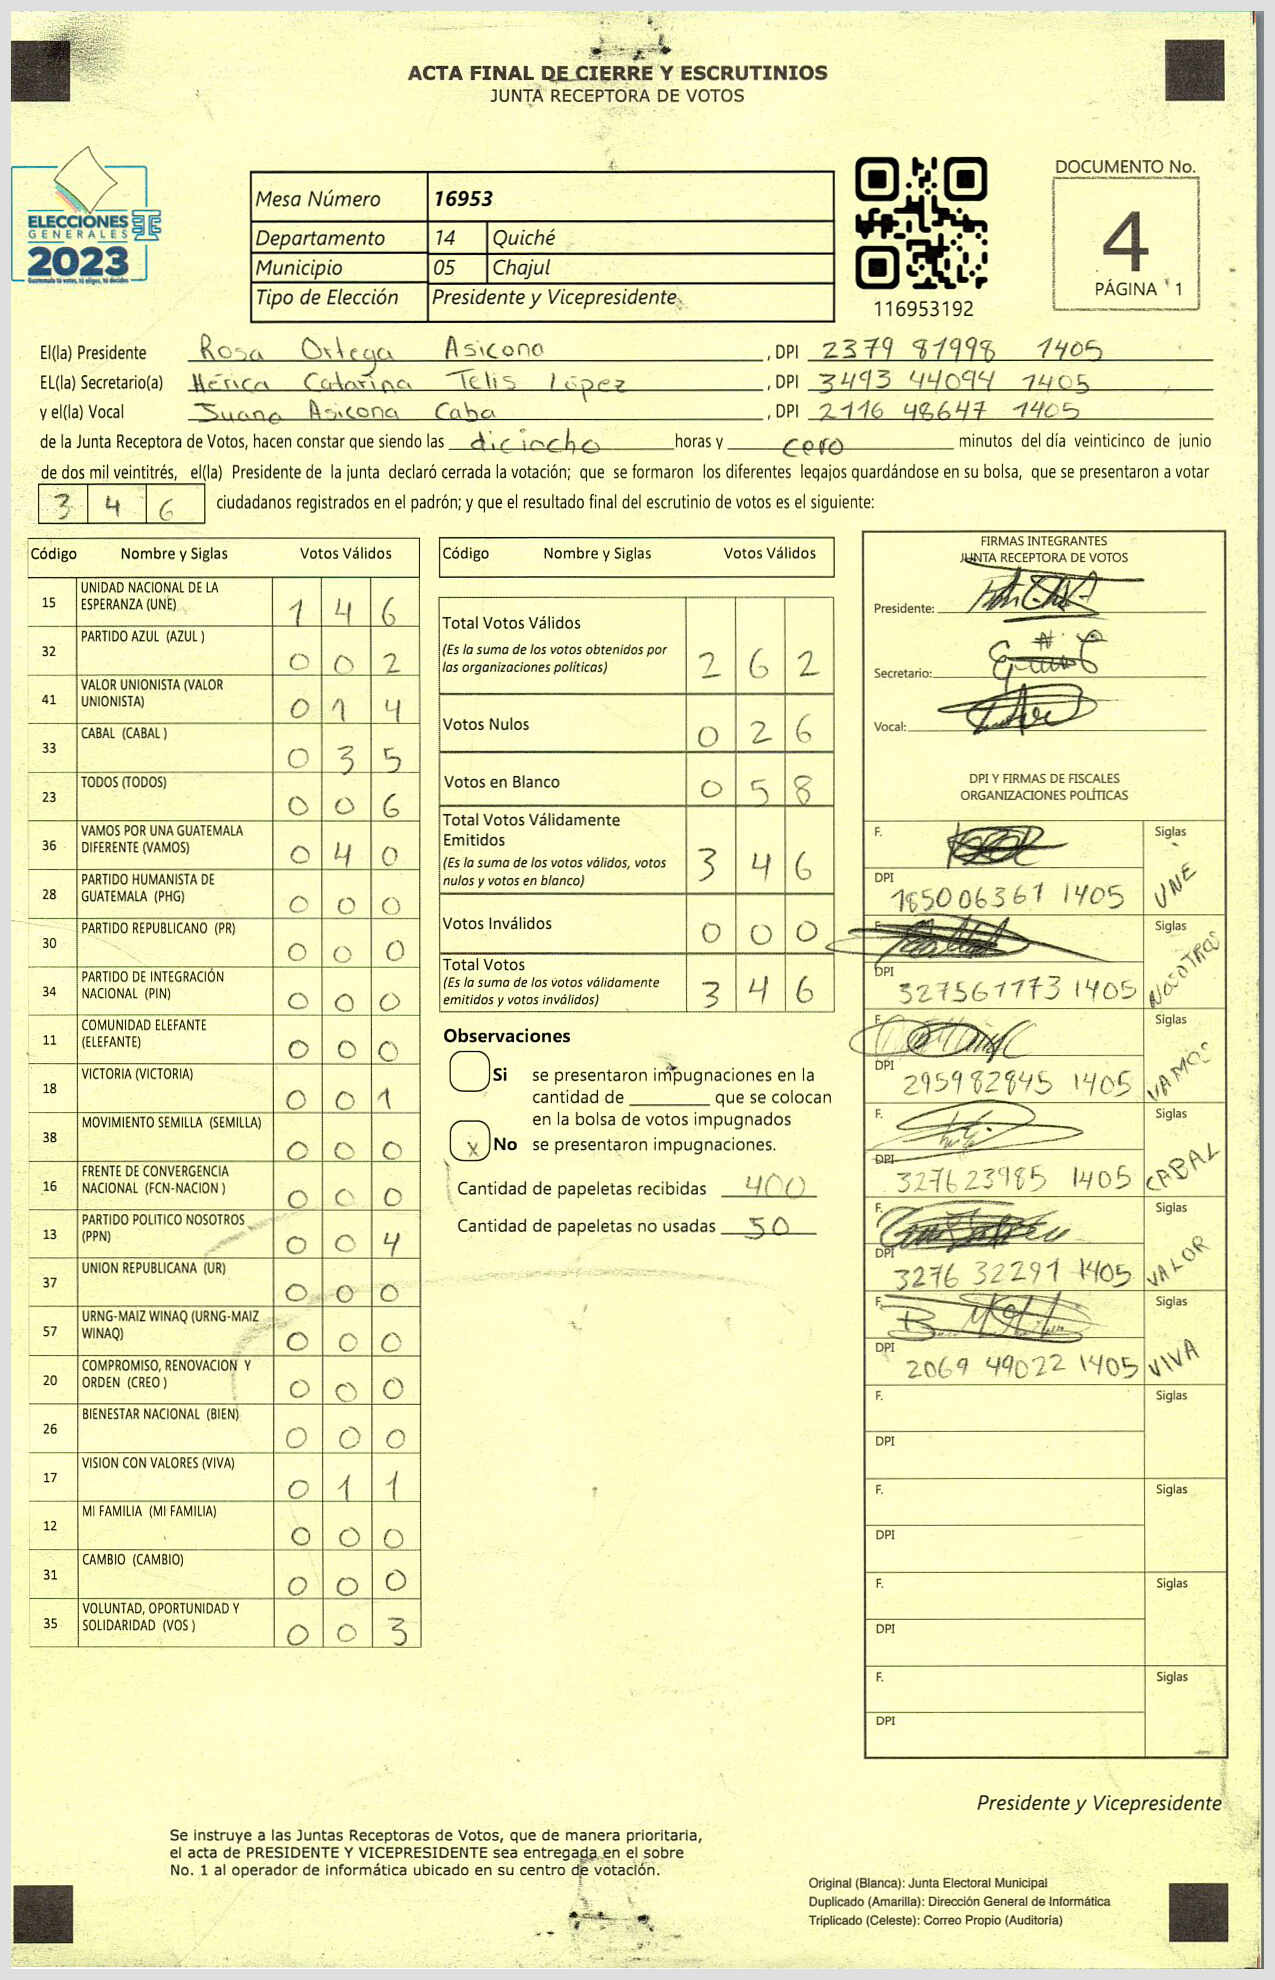 ACTA FINAL DE CIERRE Y ESCRUTINIOS
JUNTA RECEPTORA DE VOTOS
ELECCIONES
GENERALES
2023
Guatemala tú votas, tú eliges, tú decides
Mesa Número 16953
Departamento 14 Quiché
Municipio 05 Chajul
Tipo de Elección Presidente y Vicepresidente
116953192
DOCUMENTO No.
4
PÁGINA 1
El(la) Presidente Rosa Ortega Asicona , DPI 2379 81998 1405
EL(la) Secretario(a) Hérica Catarina Telis López , DPI 3493 44094 1405
y el(la) Vocal Juana Asicona Caba , DPI 2116 48647 1405
de la Junta Receptora de Votos, hacen constar que siendo las diciocho horas y cero minutos del día veinticinco de junio
de dos mil veintitrés, el(la) Presidente de la junta declaró cerrada la votación; que se formaron los diferentes legajos quardándose en su bolsa, que se presentaron a votar
3 4 6 ciudadanos registrados en el padrón; y que el resultado final del escrutinio de votos es el siguiente:
Código Nombre y Siglas Votos Válidos
15 UNIDAD NACIONAL DE LA
ESPERANZA (UNE) 1 4 6
32 PARTIDO AZUL (AZUL ) 0 0 2
41 VALOR UNIONISTA (VALOR
UNIONISTA) 0 1 4
33 CABAL (CABAL ) 0 3 5
23 TODOS (TODOS) 0 0 6
36 VAMOS POR UNA GUATEMALA
DIFERENTE (VAMOS) 0 4 0
28 PARTIDO HUMANISTA DE
GUATEMALA (PHG) 0 0 0
30 PARTIDO REPUBLICANO (PR) 0 0 0
34 PARTIDO DE INTEGRACIÓN
NACIONAL (PIN) 0 0 0
11 COMUNIDAD ELEFANTE
(ELEFANTE) 0 0 0
18 VICTORIA (VICTORIA) 0 0 1
38 MOVIMIENTO SEMILLA (SEMILLA) 0 0 0
16 FRENTE DE CONVERGENCIA
NACIONAL (FCN-NACION ) 0 0 0
13 PARTIDO POLITICO NOSOTROS
(PPN) 0 0 4
37 UNION REPUBLICANA (UR) 0 0 0
57 URNG-MAIZ WINAQ (URNG-MAIZ
WINAQ) 0 0 0
20 COMPROMISO, RENOVACION Y
ORDEN (CREO ) 0 0 0
26 BIENESTAR NACIONAL (BIEN) 0 0 0
17 VISION CON VALORES (VIVA) 0 1 1
12 MI FAMILIA (MI FAMILIA) 0 0 0
31 CAMBIO (CAMBIO) 0 0 0
35 VOLUNTAD, OPORTUNIDAD Y
SOLIDARIDAD (VOS ) 0 0 3
Código Nombre y Siglas Votos Válidos
Total Votos Válidos
(Es la suma de los votos obtenidos por
las organizaciones políticas) 2 6 2
Votos Nulos 0 2 6
Votos en Blanco 0 5 8
Total Votos Válidamente
Emitidos
(Es la suma de los votos válidos, votos
nulos y votos en blanco) 3 4 6
Votos Inválidos 0 0 0
Total Votos
(Es la suma de los votos válidamente
emitidos y votos inválidos) 3 4 6
Observaciones
Si se presentaron impugnaciones en la
cantidad de ________ que se colocan
en la bolsa de votos impugnados
x No se presentaron impugnaciones.
Cantidad de papeletas recibidas 400
Cantidad de papeletas no usadas 50
FIRMAS INTEGRANTES
JUNTA RECEPTORA DE VOTOS
Presidente:
Secretario:
Vocal:
DPI Y FIRMAS DE FISCALES
ORGANIZACIONES POLÍTICAS
F. Siglas
DPI 185006361 1405 UNE
F. Siglas
DPI 327561773 1405 NOSOTROS
F. Siglas
DPI 295982845 1405 VAMOS
F. Siglas
DPI 327623985 1405 CABAL
F. Siglas
DPI 3276 32291 1405 VALOR
F. Siglas
DPI 2069 49022 1405 VIVA
F. Siglas
DPI
F. Siglas
DPI
F. Siglas
DPI
F. Siglas
DPI
Presidente y Vicepresidente
Se instruye a las Juntas Receptoras de Votos, que de manera prioritaria,
el acta de PRESIDENTE Y VICEPRESIDENTE sea entregada en el sobre
No. 1 al operador de informática ubicado en su centro de votación.
Original (Blanca): Junta Electoral Municipal
Duplicado (Amarilla): Dirección General de Informática
Triplicado (Celeste): Correo Propio (Auditoría)